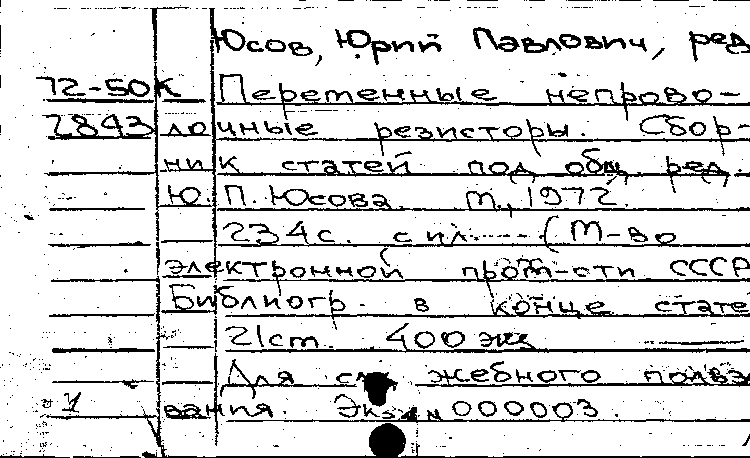 Юсов, Юрий Павлович, ред
72-50К Переменные непрово-
2843 лочные резисторы. Сбор-
ник статей под общ. ред.
Ю. П. Юсова. М., 1972.
234с. с ил. (М-во
электронной пром-сти СССР
Библиогр. в конце стате
21ст. 400 экз
Для служебного пользо
1 вания. Экз. № 000003.